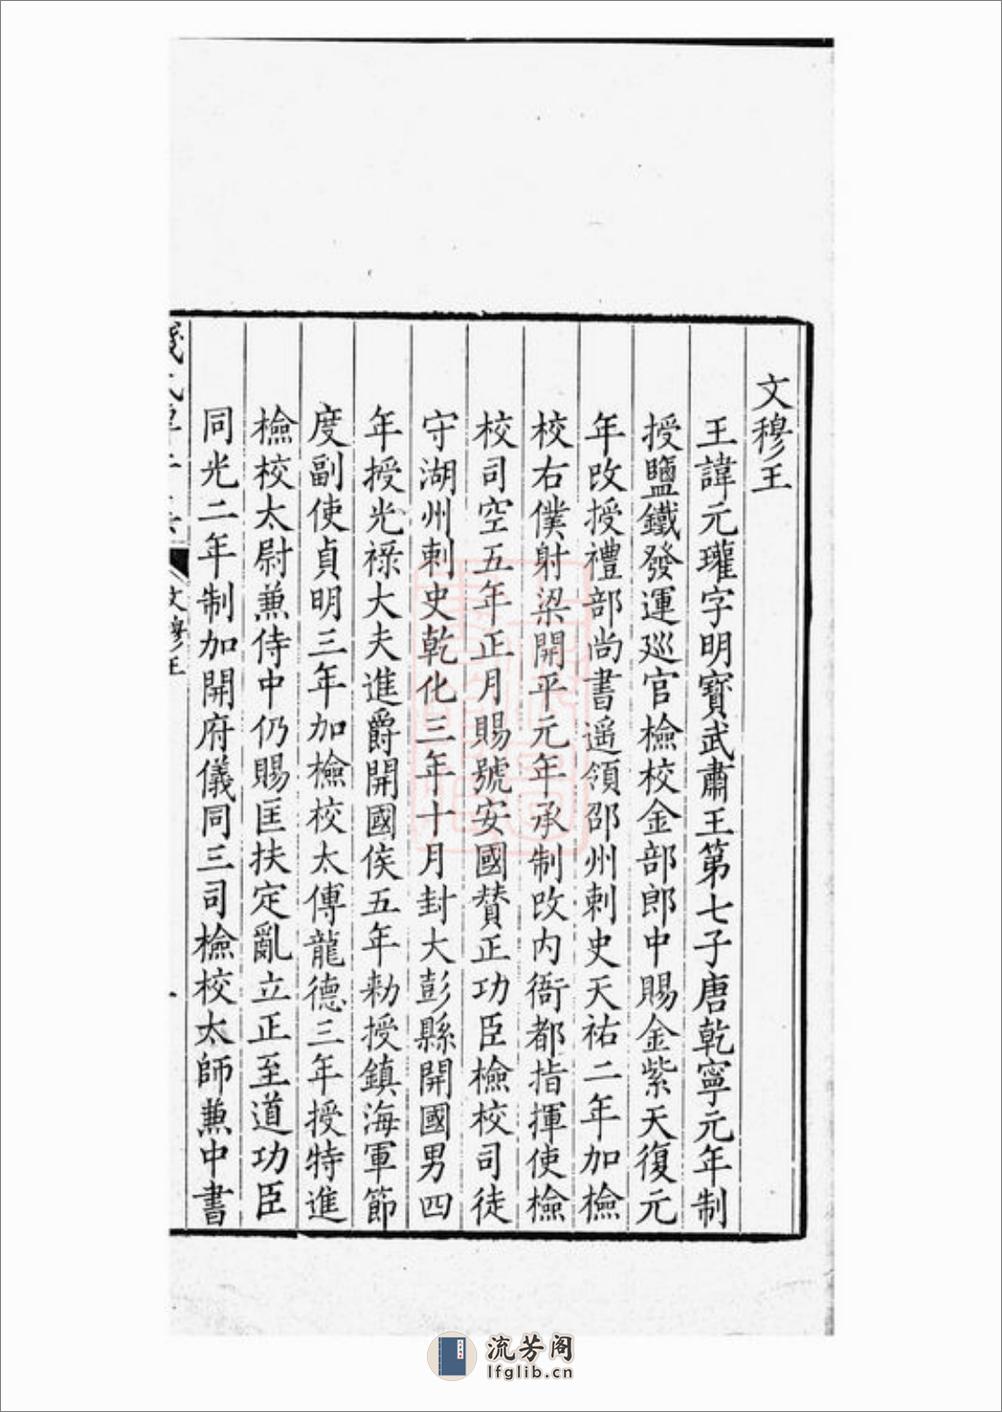 文穆王
王諱元瓘字明寳武肅王第七子唐乾寧元年制
授鹽鐵發運廵官檢校金部郎中賜金紫天復元
年改授禮部尚書遥領邵州刺史天祐二年加檢
校右僕射梁開平元年承制改内衙都指揮使檢
校司空五年正月賜號安國贊正功臣檢校司徒
守湖州刺史乾化三年十月封大彭縣開國男四
年授光祿大夫進爵開國侯五年勅授鎮海軍節
度副使貞明三年加檢校太傅龍德三年授特進
檢校太尉兼侍中仍賜匡扶定亂立正至道功臣
同光二年制加開府儀同三司檢校太師兼中書
文穆王
流芳阁
lfglib.cn